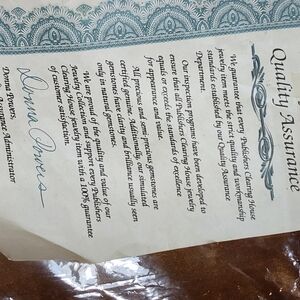 Quality Assurance
We guarantee that every Publishers Clearing House
jewelry item meets the strict quality and workmanship
standards established by our Quality Assurance
Department.
Our inspection programs have been developed to
ensure that all Publishers Clearing House jewelry
equals or exceeds the standards of excellence
for appearance and value.
All precious and semi-precious gemstones are
certified genuine. Additionally, our simulated
gemstones have clarity and brilliance usually seen
only in natural gemstones.
We are proud of the quality and value of our
Jewelry Collection and support every Publishers
Clearing House jewelry item with a 100% guarantee
of customer satisfaction.
Donna Powers
Donna Powers,
Assurance Administrator